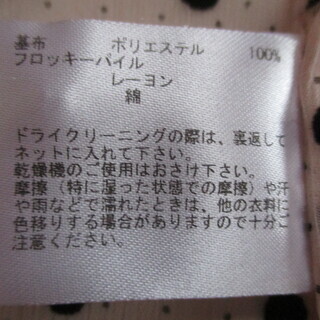 基布 ポリエステル 100%
フロッキーパイル
レーヨン
綿
ドライクリーニングの際は、裏返して
ネットに入れて下さい。
乾燥機のご使用はおさけ下さい。
摩擦（特に湿った状態での摩擦）や汗
や雨などで濡れたときは、他の衣料に
色移りする場合がありますので十分ご
注意ください。